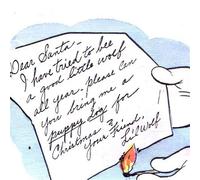 Dear Santa-
I have tried to bee
a good little wolf
all year. Please Can
you bring me a
puppy dog for
Christmas?
Your Friend,
Lil Wolf